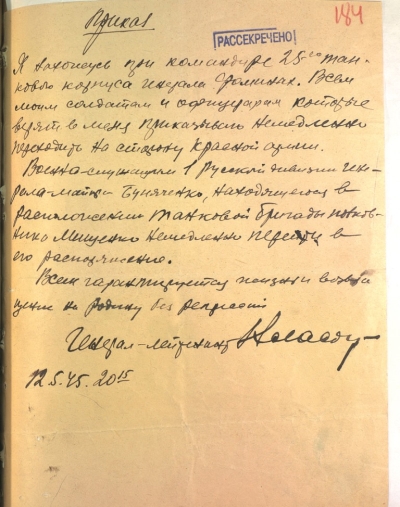 184
Приказ
РАССЕКРЕЧЕНО
Я нахожусь при командире 25-го тан-
кового корпуса генерала Фоминых. Всем
моим солдатам и офицерам которые
верят в меня приказываю немедленно
переходить на сторону Красной армии.
Военно-служащим 1 Русской дивизии ген-
рала-майора Буняченко, находящегося в
расположении танковой бригады полков-
ника Мищенко немедленно перейти в
его распоряжение.
Всем гарантируется жизнь и возвра
щение на Родину без репрессий
Генерал-лейтенант Власов
12.5.45. 20 15